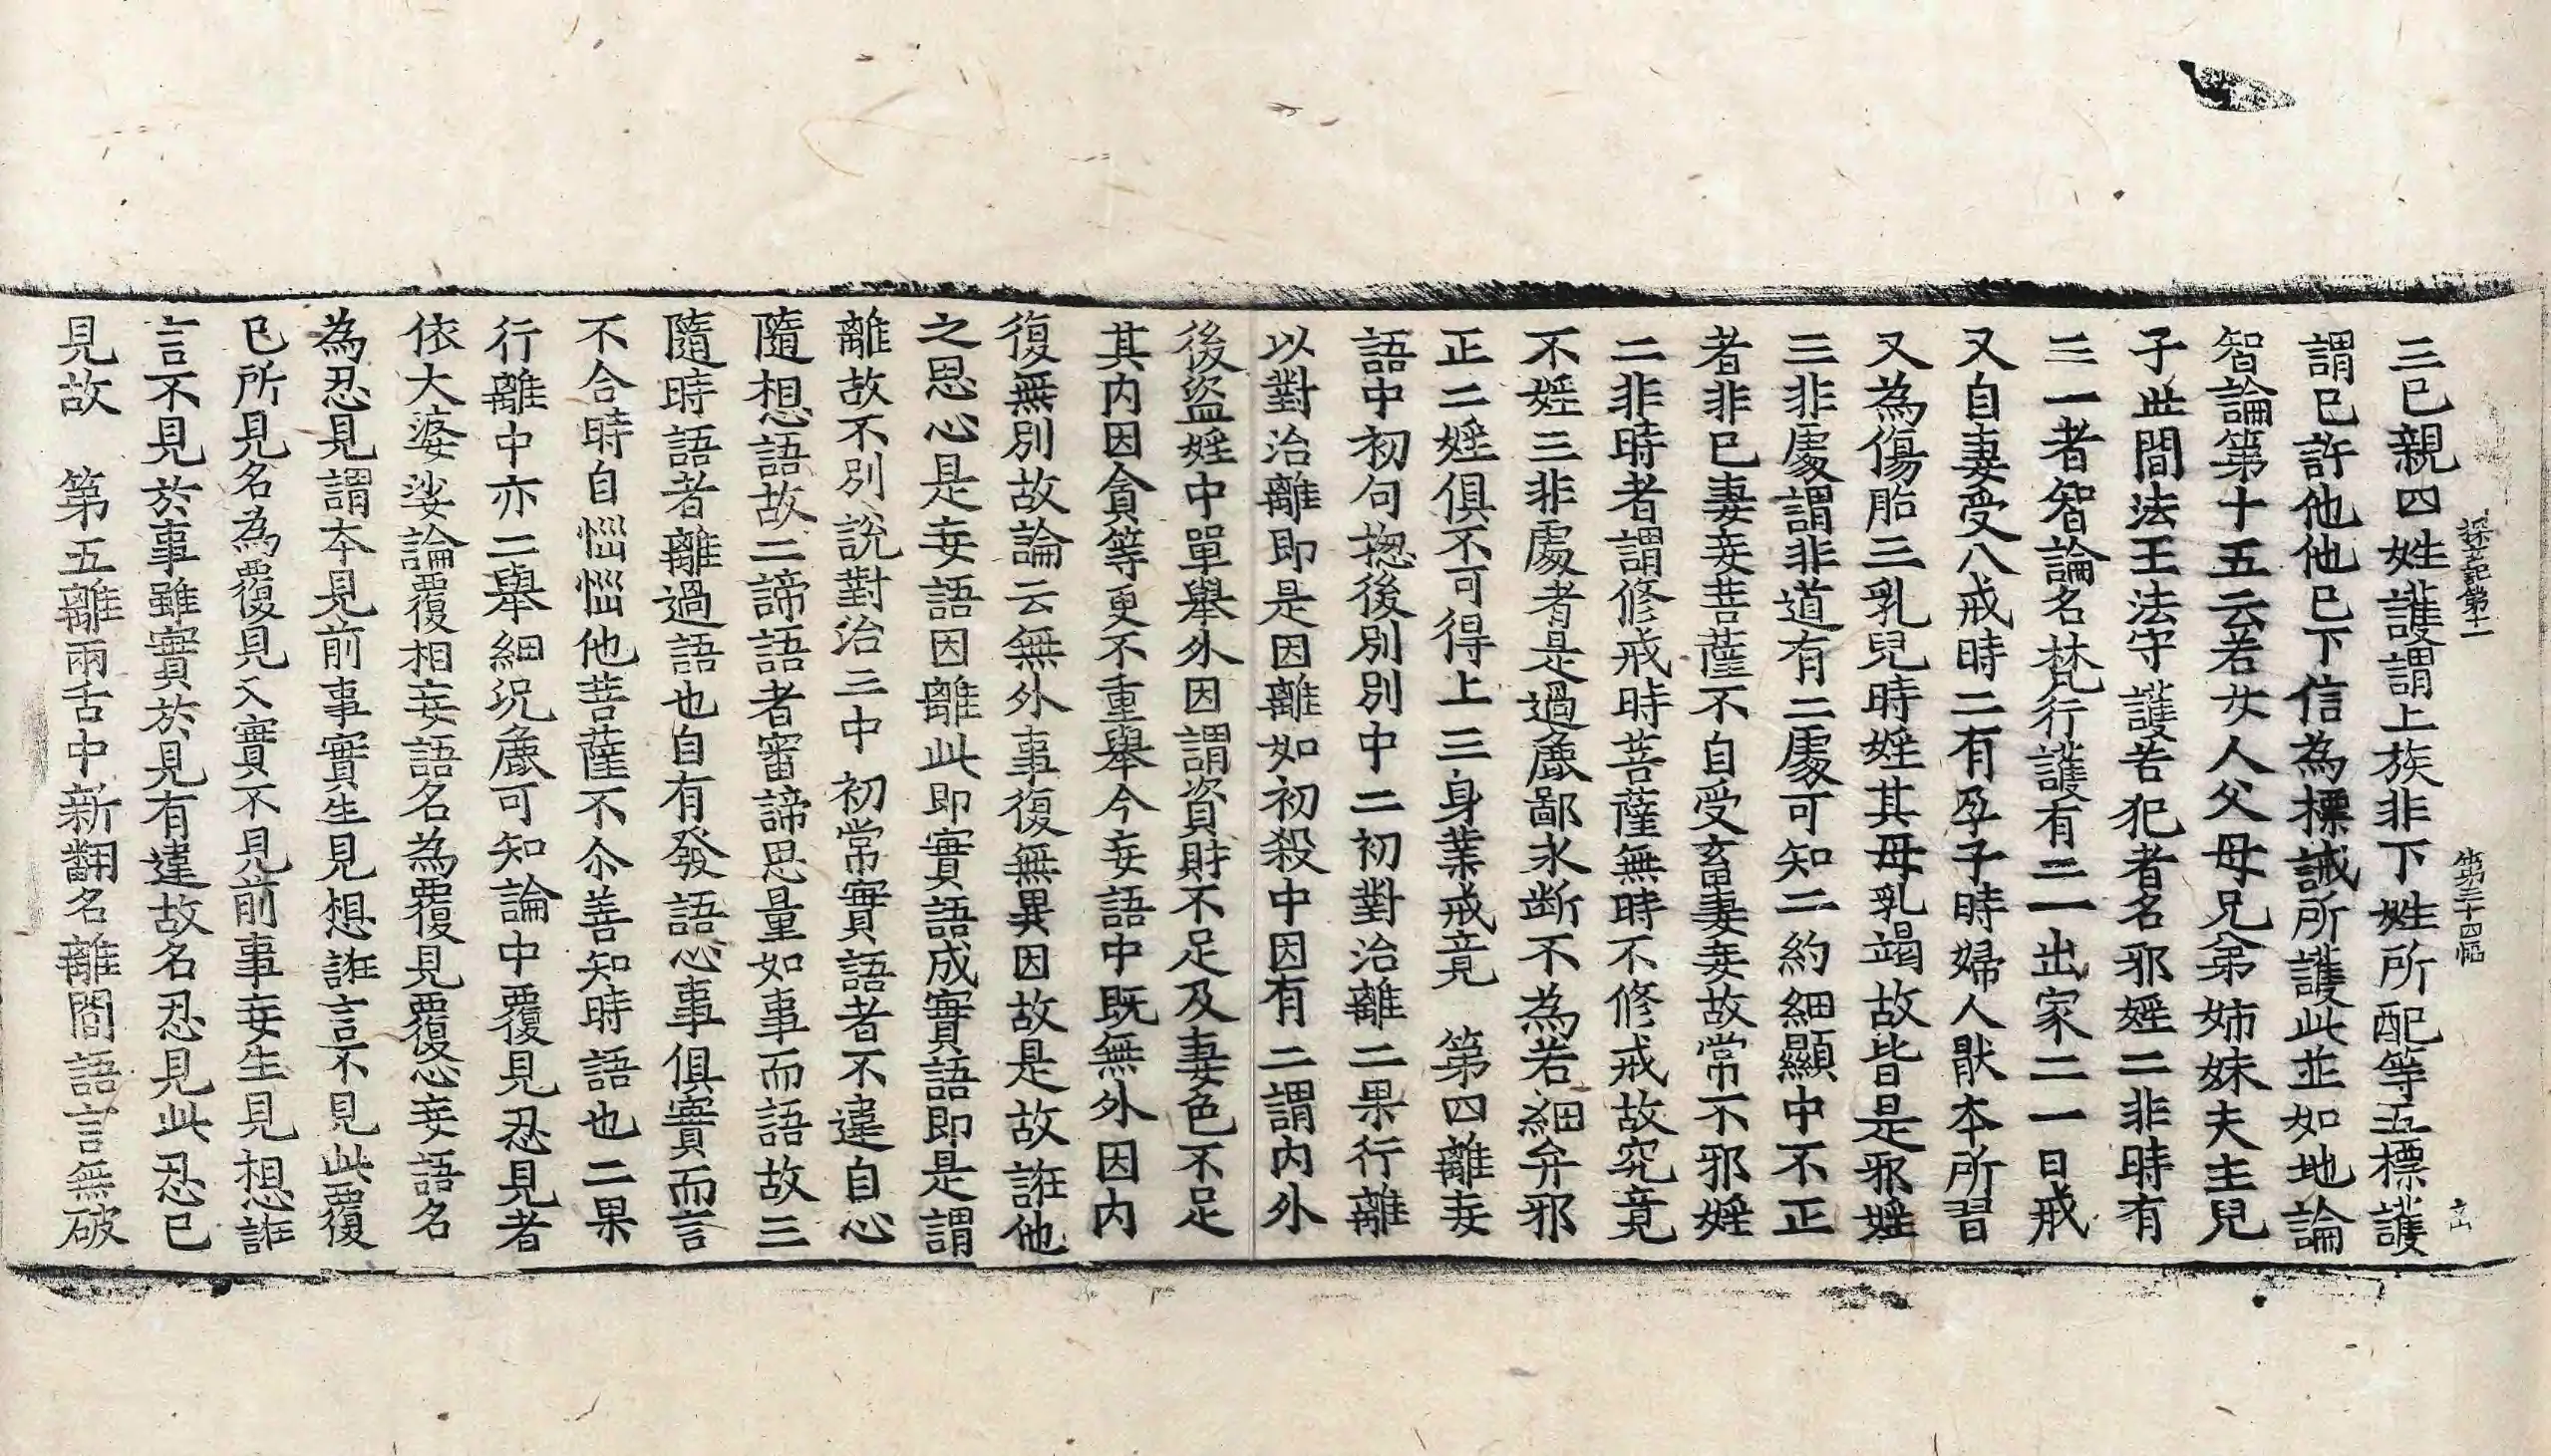 探玄記第十一 第三十四幅 立
三已親四姓護謂上族非下姓所配等五標護
謂已許他他已下信為摽誡所護此並如地論
智論第十五云若女人父母兄弟姉妹夫主兒
子此間法王法守護若犯者名邪婬二非時有
三一者智論名梵行護有三一出家二一日戒
又自妻受八戒時二有孕子時婦人猒本所習
又為傷胎三乳兒時婬其母乳竭故皆是邪婬
三非處謂非道有二處可知二約細顯中不正
者非已妻妾菩薩不自受畜妻妾故常不邪婬
二非時者謂修戒時菩薩無時不修戒故究竟
不婬三非處者是過麁鄙永断不為若細弁邪
正二婬俱不可得上三身業戒竟 第四離妄
語中初句揔後別別中二初對治離二果行離
以對治離即是因離如初殺中因有二謂内外
後盜婬中單舉外因謂資財不足及妻色不足
其内因貪等更不重舉今妄語中既無外因内
復無別故論云無外事復無異因故是故誑他
之思心是妄語因離此即實語成實語即是謂
離故不別說對治三中 初常實語者不違自心
隨想語故二諦語者審諦思量如事而語故三
隨時語者離過語也自有發語忩事俱實而言
不合時自惱惱他菩薩不尒善知時語也二果
行離中亦二舉細況麁可知論中覆見忍見者
依大婆娑論覆相妄語名為覆見覆忍妄語名
為忍見謂本見前事實生見想誑言不見此覆
已所見名為覆見又實不見前事妄生見想誑
言不見於事雖實於見有違故名忍見此忍已
見故 第五離兩舌中新翻名離間語言無破